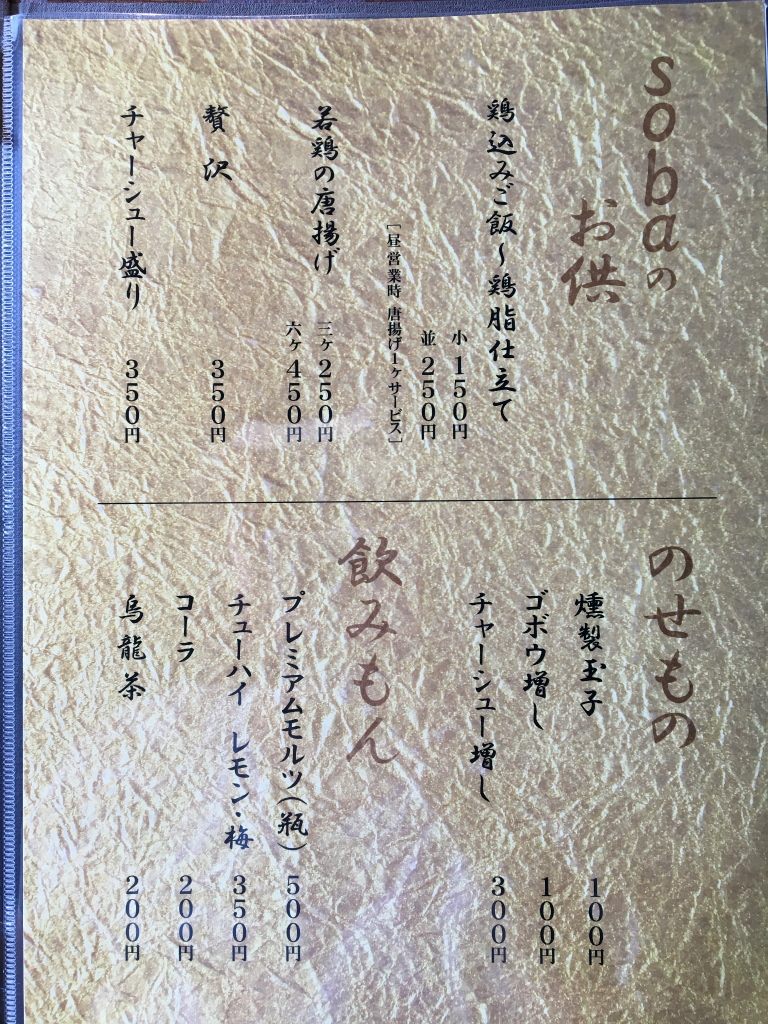 sobaの
お供
鶏込みご飯～鶏脂仕立て
小 150円
並 250円
[昼営業時 唐揚げ1ヶサービス]
若鶏の唐揚げ
三ヶ 250円
六ヶ 450円
贅沢 350円
チャーシュー盛り 350円
のせもの
燻製玉子 100円
ゴボウ増し 100円
チャーシュー増し 300円
飲みもん
プレミアムモルツ(瓶) 500円
チューハイ レモン・梅 350円
コーラ 200円
烏龍茶 200円